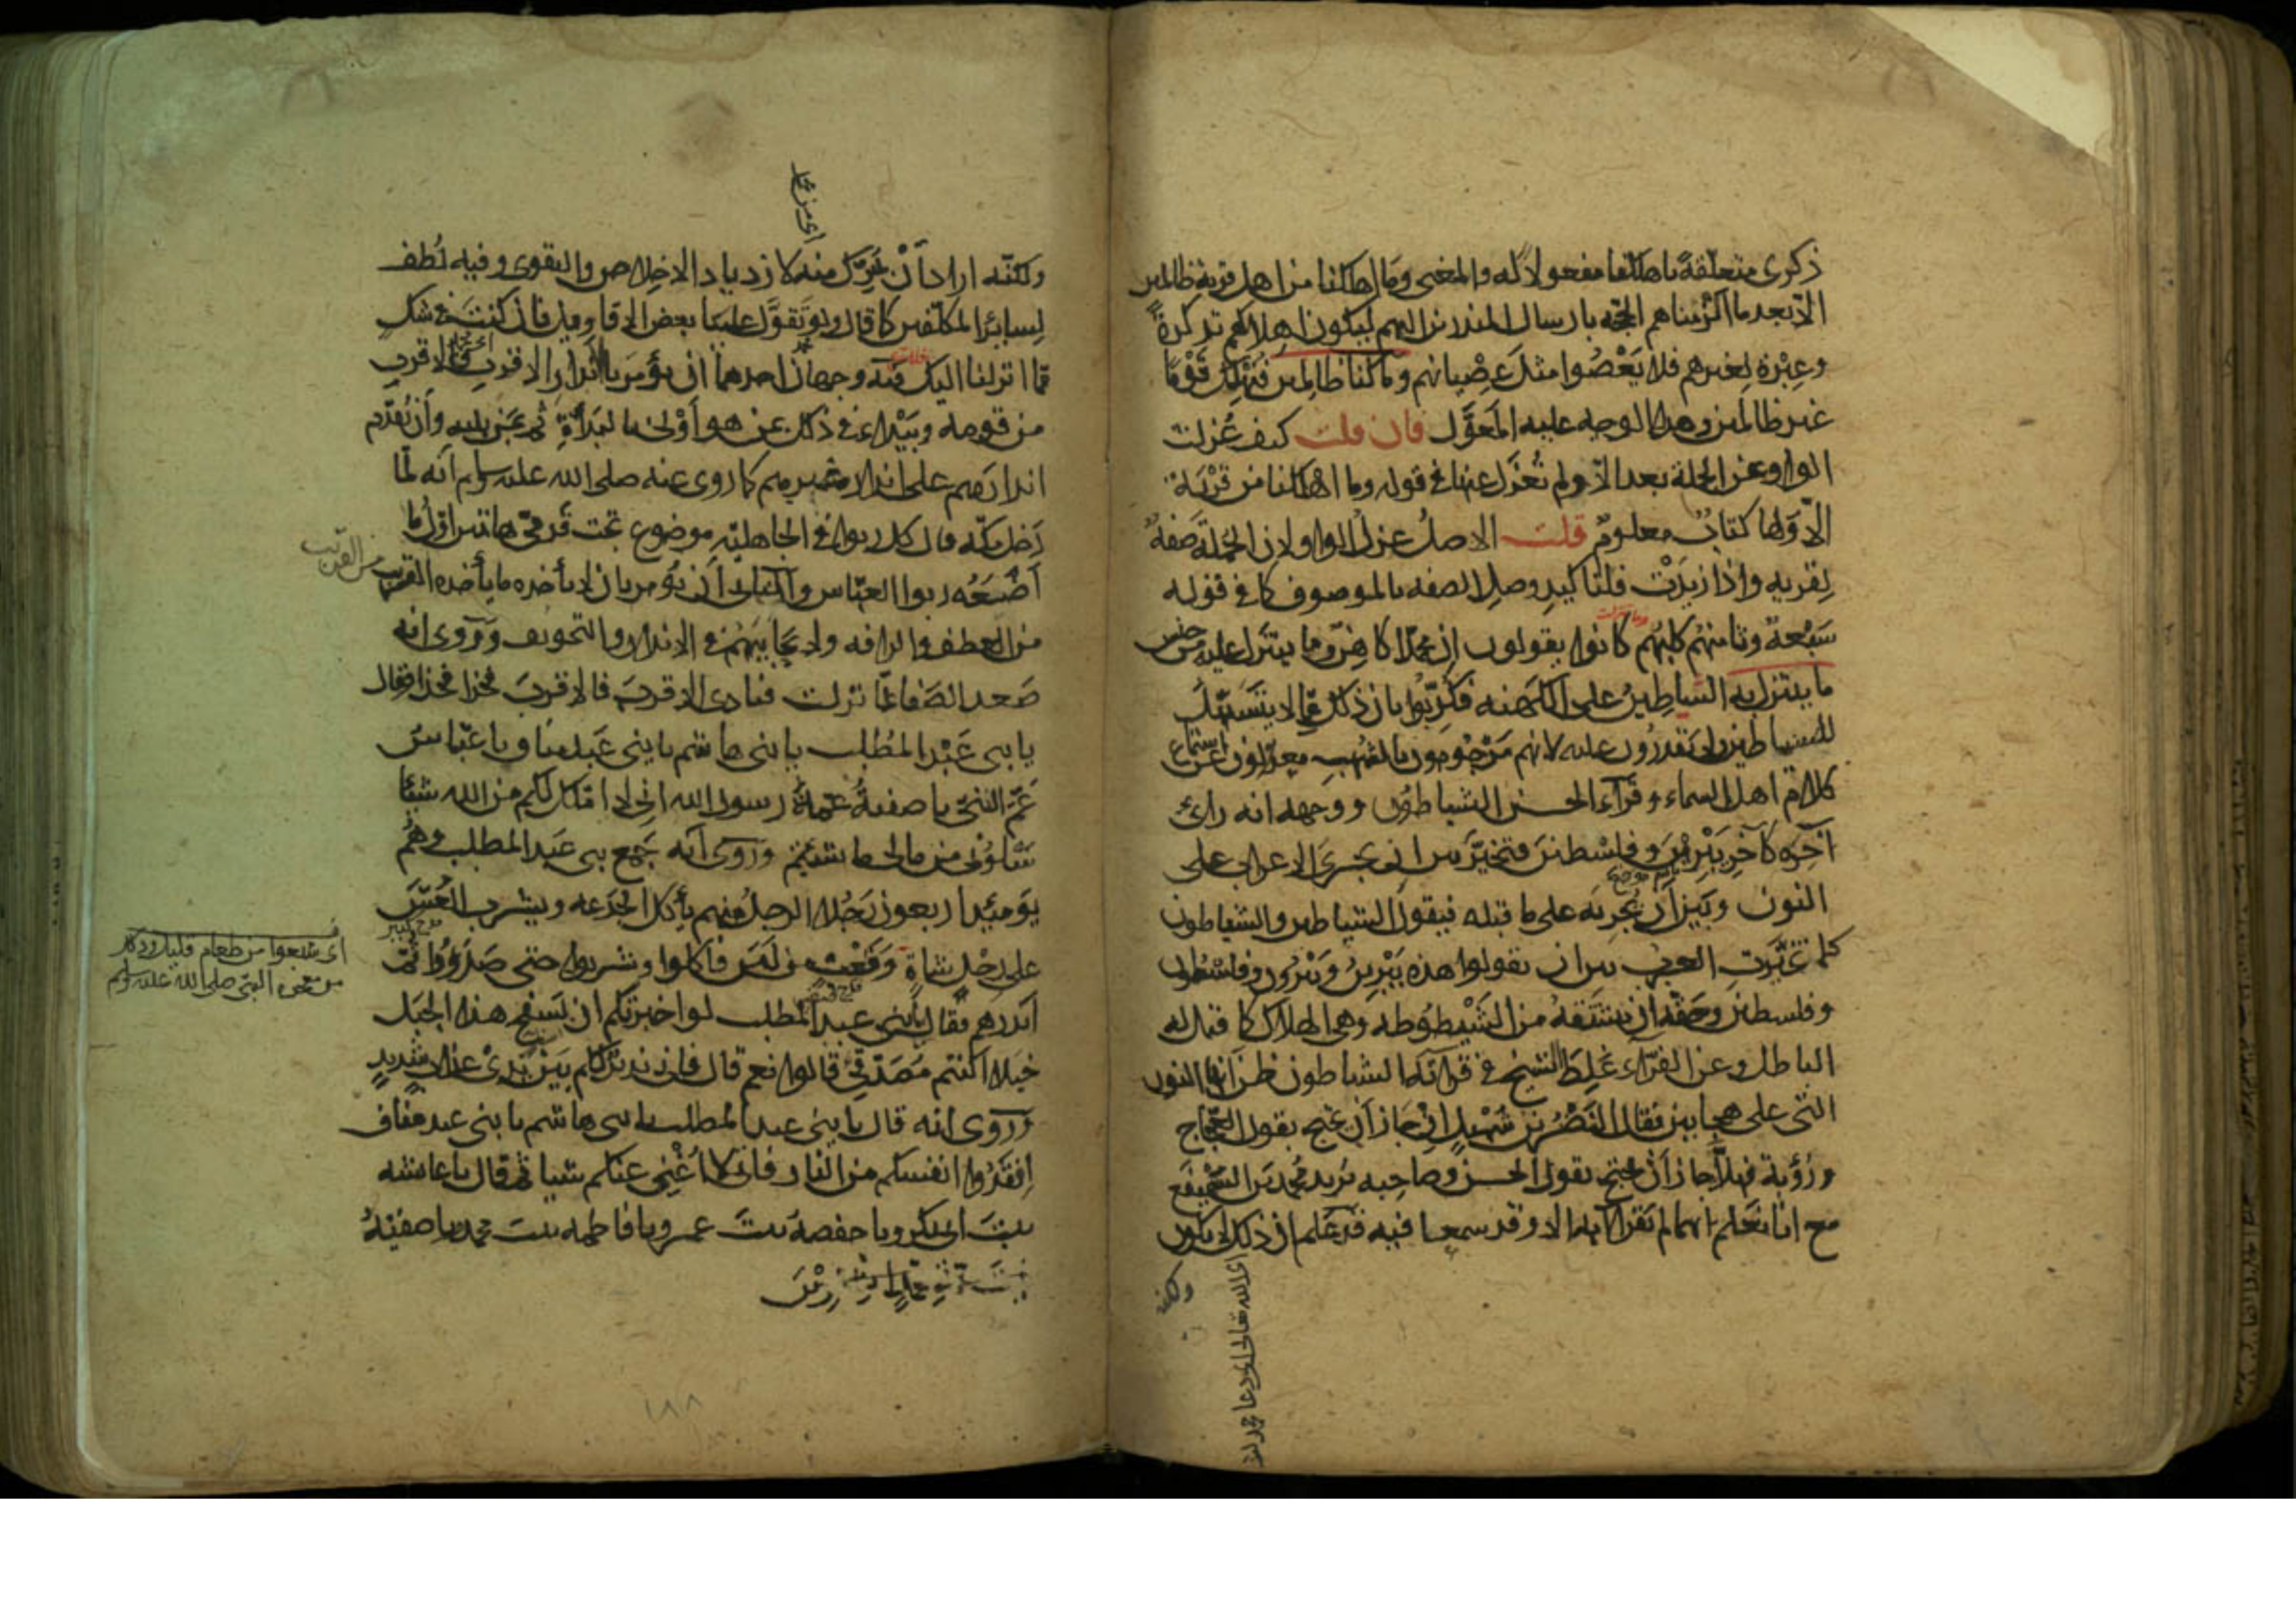 ذكرى متعلقة باهلكنا مفعولا له والمعنى وما اهلكنا من اهل قرية ظالمين
الا بعد ما الزمناهم الحجة بارسال المنذرين اليهم ليكون اهلاكهم تذكرة
وعبرة لغيرهم فلا يعصوا مثل عصيانهم وما كنا ظالمين فنهلك قوما
غير ظالمين وهذا الوجه عليه المعول فان قلت كيف عزلت
الواو عن الجملة بعد الا ولم تعزل عنها في قوله وما اهلكنا من قرية
الا ولها كتاب معلوم قلت الاصل عزل الواو لان الجملة صفة
لقرية واذا زيدت فلتاكيد وصل الصفة بالموصوف كما في قوله
سبعة وثامنهم كلبهم كانوا يقولون ان محمدا كاهن وما يتنزل عليه من جنس
ما يتنزل به الشياطين على الكهنة فكذبوا بان ذلك مما لا يتسهل
للشياطين ولا يقدرون عليه لانهم مرجومون بالشهب معزولون عن استماع
كلام اهل السماء وقرأ الحسن الشياطون ووجهه انه رأى
آخره كآخر يبرين وفلسطين فتخير بين ان يجرى الاعراب على
النون وبين ان يجريه على ما قبله فيقول الشياطين والشياطون
كما تخيرت العرب بين ان يقولوا هذه يبرين ويبرون وفلسطون
وفلسطين وحقه ان تشتقه من الشيطوطة وهي الهلاك كما قيل له
الباطل وعن الفراء غلط الشيخ في قراته الشياطون ظن انها النون
التي على هجاءين فقال النضر بن شميل ان جاز ان يحتج بقول العجاج
ورؤبة فهلا جاز ان يحتج بقول الحسن وصاحبه يريد محمد بن السميفع
مع انا نعلم انهما لم يقرآ به الا وقد سمعا فيه قد علم ان ذلك لا يكون
ولكنه
اى من محمد
ولكنه اراد ان يحرك منه لازدياد الاخلاص والتقوى وفيه لطف
لسائر المكلفين كما قال ولو تقول علينا بعض الاقاويل فان كنت في شك
مما انزلنا اليك فيه وجهان احدهما ان يؤمر بانذار الاقرب فالاقرب
من قومه ويبدأ في ذلك بمن هو اولى بالبدأة ثم بمن يليه وان يقدم
انذارهم على انذار غيرهم كما روى عنه صلى الله عليه وسلم انه لما
دخل مكة قال كل ربوا في الجاهلية موضوع تحت قدمى هاتين اول ما
اضعه ربوا العباس والثانى ان يؤمر بان لا يأخذه ما يأخذ القريب
من القريب
من العطف والرافة ولا يحابيهم في الانذار والتخويف وروى انه
صعد الصفا لما نزلت فنادى الاقرب فالاقرب فخذا فخذا وقال
يا بنى عبد المطلب يا بنى هاشم يا بنى عبد مناف يا عباس
عم النبى يا صفية عمة رسول الله انى لا املك لكم من الله شيئا
سلونى من مالى ما شئتم وروى انه جمع بنى عبد المطلب وهم
يومئذ اربعون رجلا الرجل منهم يأكل الجذعة ويشرب العس
قدح كبير
على رجل شاة وقعب من لبن فاكلوا وشربوا حتى صدروا ثم
اى شبعوا من طعام قليل وذلك
من معجزة النبى صلى الله عليه وسلم
انذرهم فقال يا بنى عبد المطلب لو اخبرتكم ان بسفح هذا الجبل
خيلا اكنتم مصدقى قالوا نعم قال فانى نذير لكم بين يدى عذاب شديد
وروى انه قال يا بنى عبد المطلب يا بنى هاشم يا بنى عبد مناف
افتدوا انفسكم من النار فانى لا اغنى عنكم شيئا ثم قال يا عائشة
بنت ابى بكر ويا حفصة بنت عمر ويا فاطمة بنت محمد ويا صفية
١٨٨